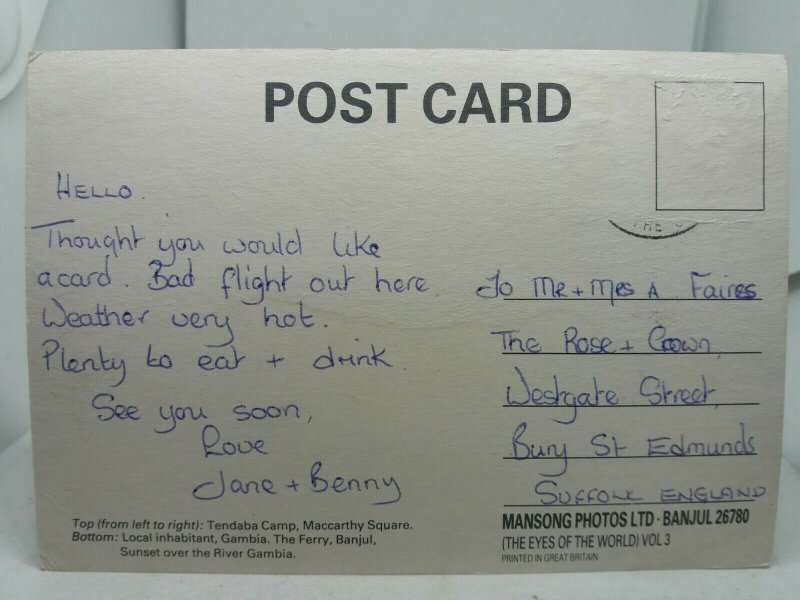 POST CARD
THE
HELLO.
Thought you would like
a card. Bad flight out here.
Weather very hot.
Plenty to eat + drink.
See you soon,
Love
Jane + Benny
To Mr + Mrs A. Faires
The Rose + Crown,
Westgate Street,
Bury St Edmunds
SUFFOLK ENGLAND
Top (from left to right): Tendaba Camp, Maccarthy Square.
Bottom: Local inhabitant, Gambia. The Ferry, Banjul,
Sunset over the River Gambia.
MANSONG PHOTOS LTD · BANJUL 26780
(THE EYES OF THE WORLD) VOL 3
PRINTED IN GREAT BRITAIN